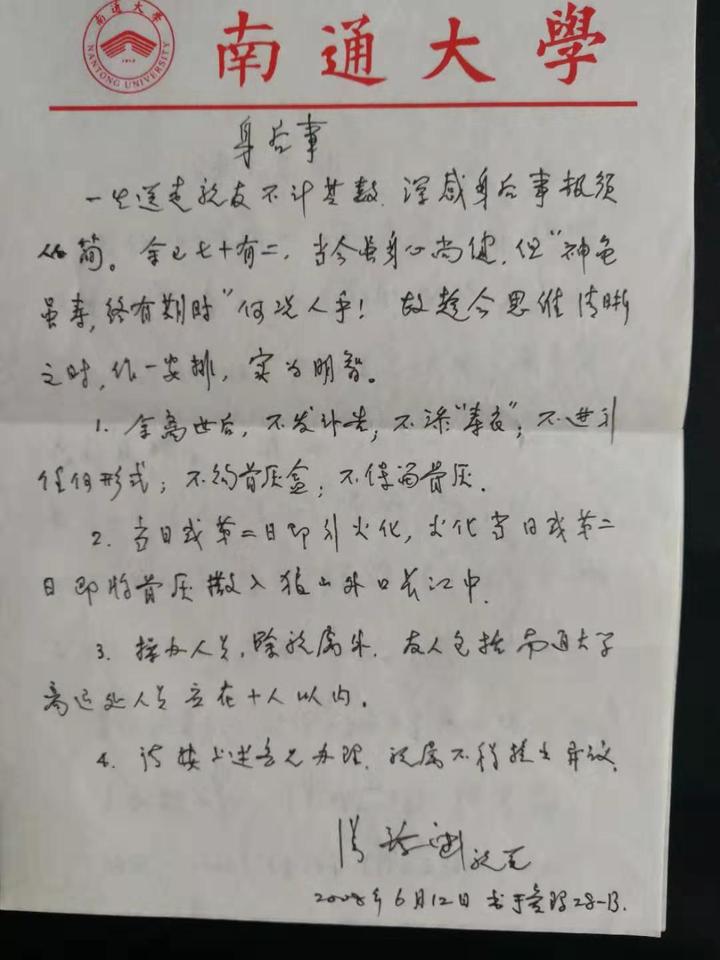 南通大学
NANTONG UNIVERSITY
1912
南通大學
身后事
一生送走亲友不计其数,深感身后事报须
从简。余已七十有二,当今虽身心尚健,但“神龟
虽寿,终有期时”何况人乎!故趁今思维清晰
之时,作一安排,实为明智。
1. 余离世后,不发讣告;不添“寿衣”;不进行
任何形式;不购骨灰盒;不保留骨灰.
2. 当日或第二日即行火化,火化当日或第二
日即将骨灰撒入狼山外口长江中.
3. 操办人员,除亲属外,友人包括南通大学
离退处人员应在十人以内。
4. 请按上述意见办理,亲属不得提出异议.
亲笔
2008年6月12日 书于 28-13.